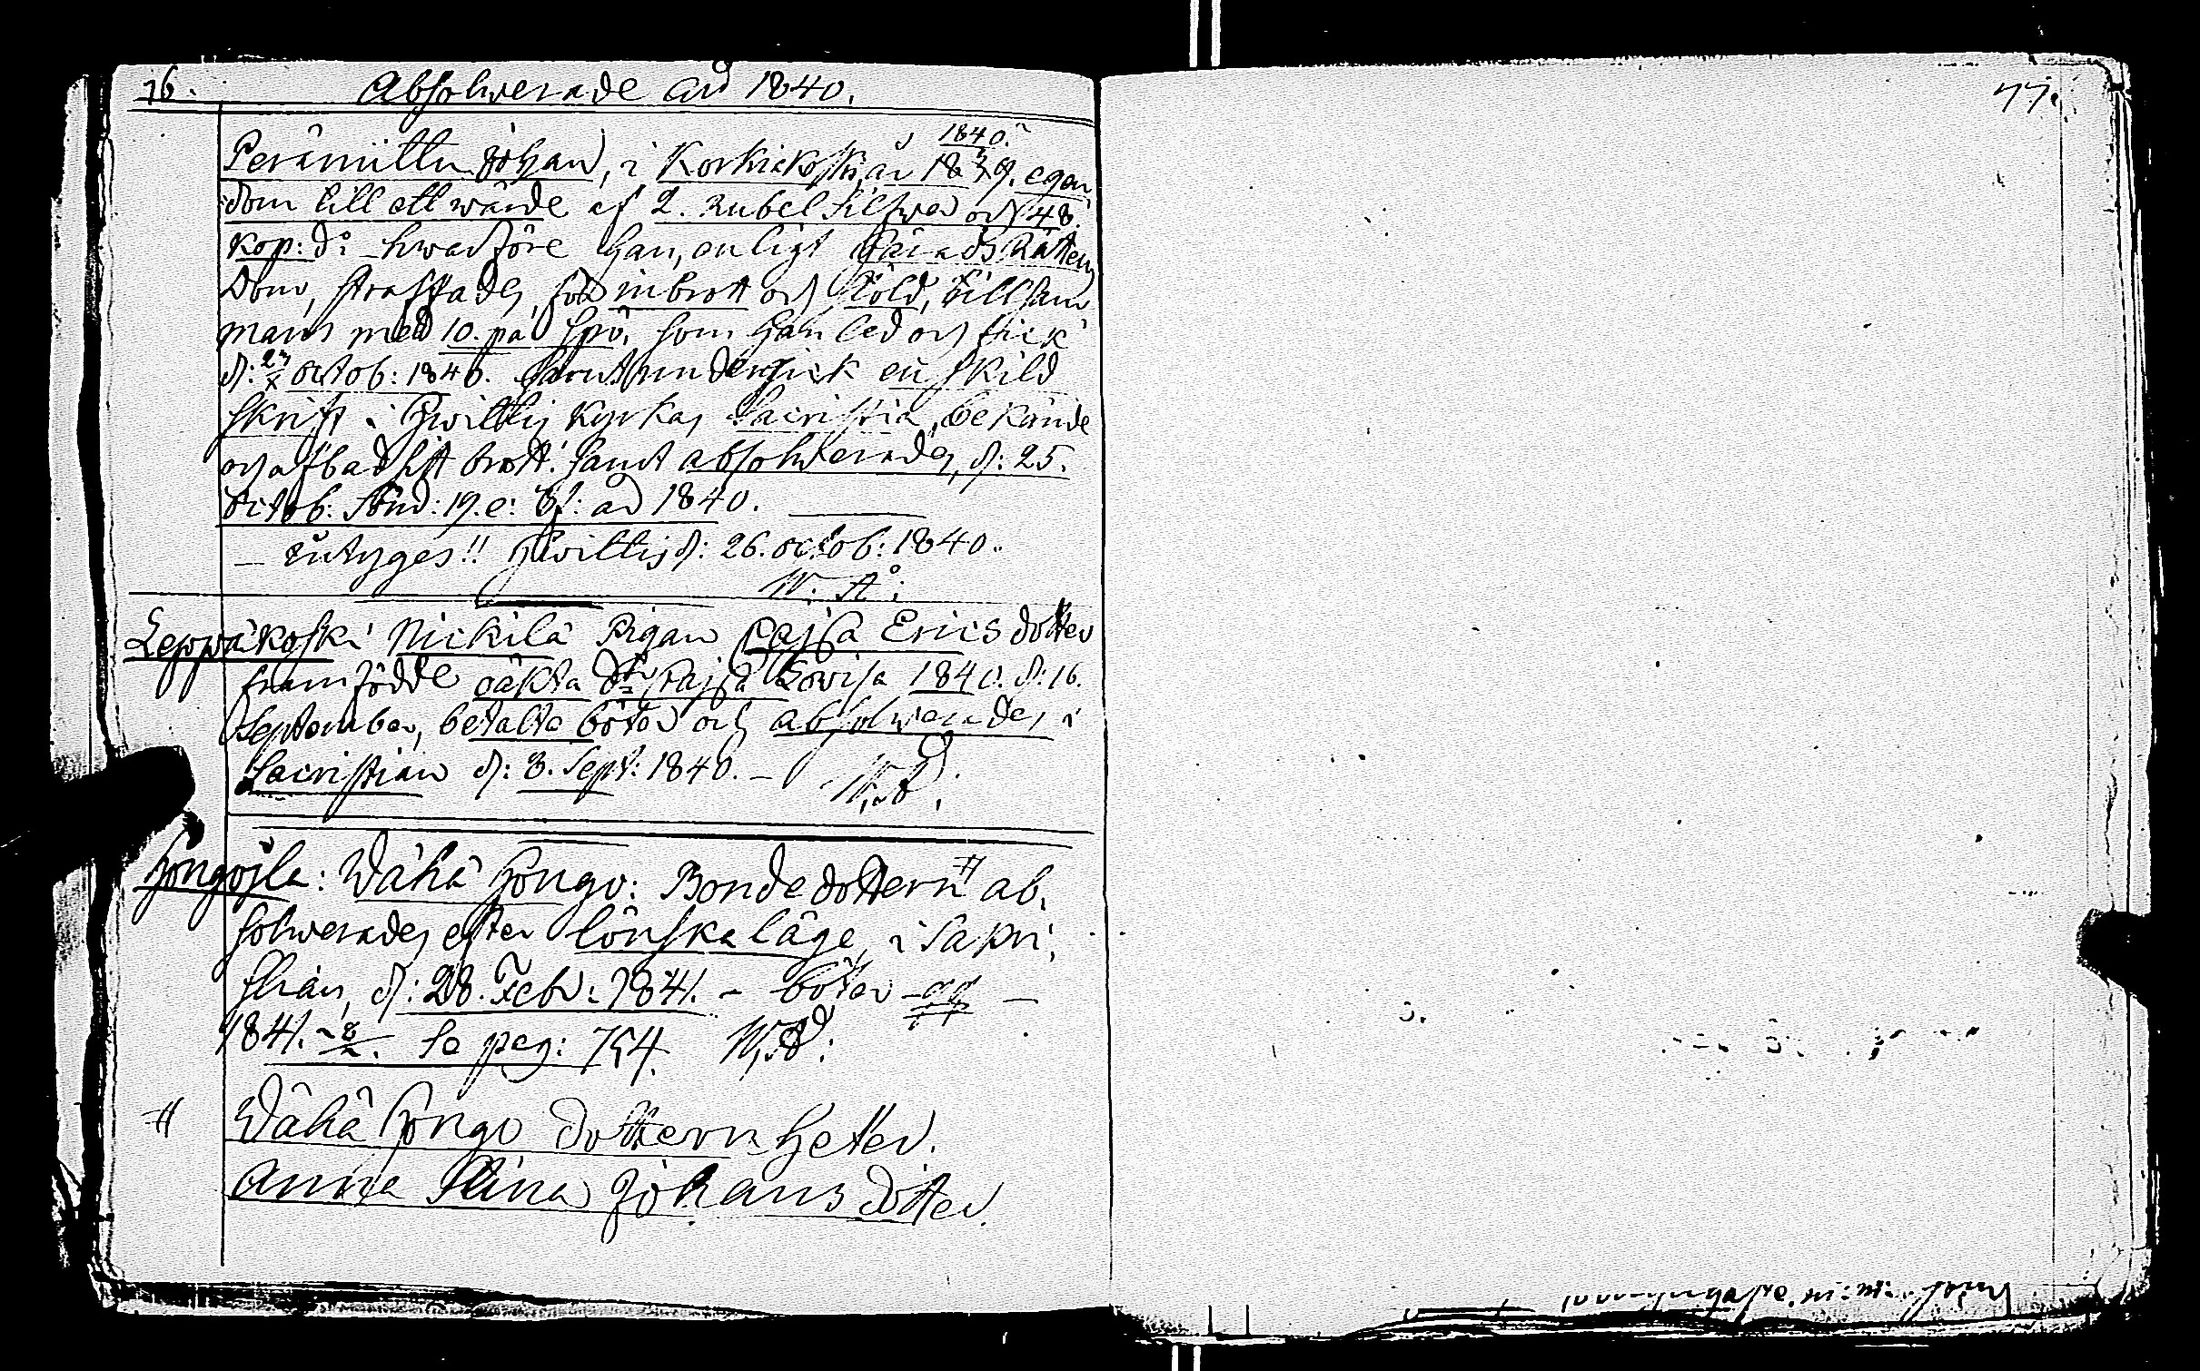 76. Absolverade ad 1840.
Perämittu Johan, i Korkiakoski, år 1840. 1839. egen
dom till ett wärde af 2. rubel silfwer och 48.
kop: d:o hwarföre han, enligt HäradsRättens
Dom, straffades för inbrott och stöld, tillsam
mans med 10. par spö, som han led och fick
d: 23/X octob: 1840. samt undergick enskild
skrift i Hwittis Kyrkas Sacristia, bekände
och afbad sitt brott. samt absolverades, d: 25.
octob: Sönd: 19. e: Tf: ad 1840.
intyges!! Hwittis d: 26. octob: 1840.
Leppäkoski Nickilä Pigan Cajsa Ericsdotter
framfödde oäkta dtr Cajsa Lovisa 1840. d: 16.
September, betalte böter och absolverades i
Sacristian d: 3. Sept: 1840.
Hongojla: Wähä Hongo: Bondedottern # ab,
solverades efter lönskaläge, i Sakri,
stian, d: 28. Febr: 1841. – böter –
1841. 8/2. Se pag: 754.
# Wähä Hongo dottern heter.
Anna Stina Johansdotter.
77.